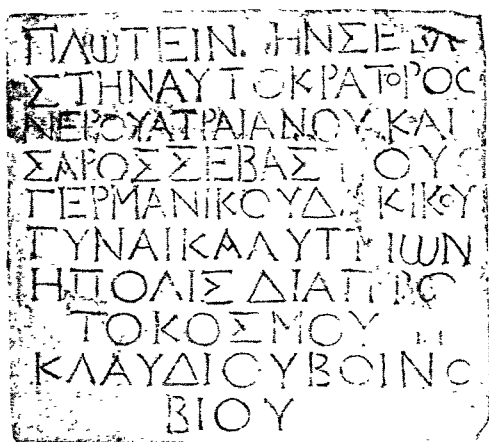 ΠΛΩΤΕΙΝΗΝΣΕΒΑ
ΣΤΗΝΑΥΤΟΚΡΑΤΟΡΟΣ
ΝΕΡΟΥΑΤΡΑΙΑΝΟΥΚΑΙ
ΣΑΡΟΣΣΕΒΑΣΤΟΥ
ΓΕΡΜΑΝΙΚΟΥΔΑΚΙΚΟΥ
ΓΥΝΑΙΚΑΛΥΤΤΙΩΝ
ΗΠΟΛΙΣ ΔΙΑΠΡΟ
ΤΟΚΟΣΜΟΥ
ΚΛΑΥΔΙΟΥΒΟΙΝΟ
ΒΙΟΥ